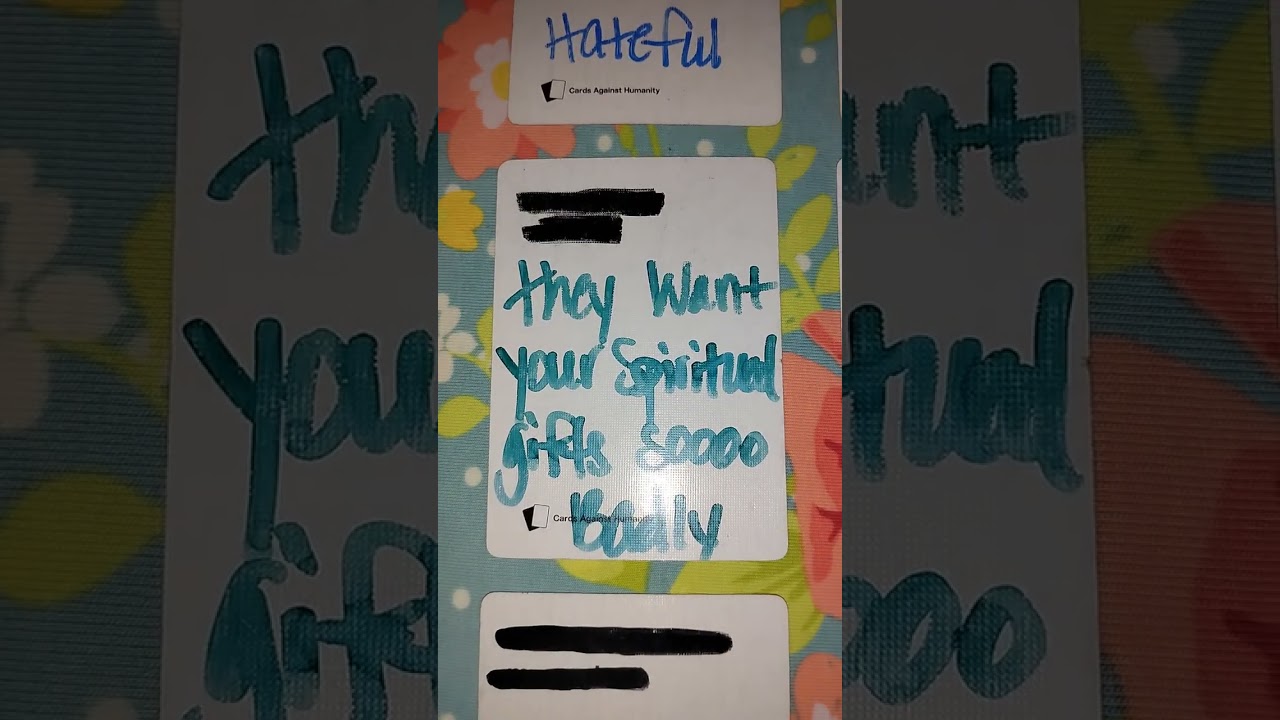 Hateful
Cards Against Humanity
they Want
your Spiritual
gifts soooo
Badly
Cards Against Humanity